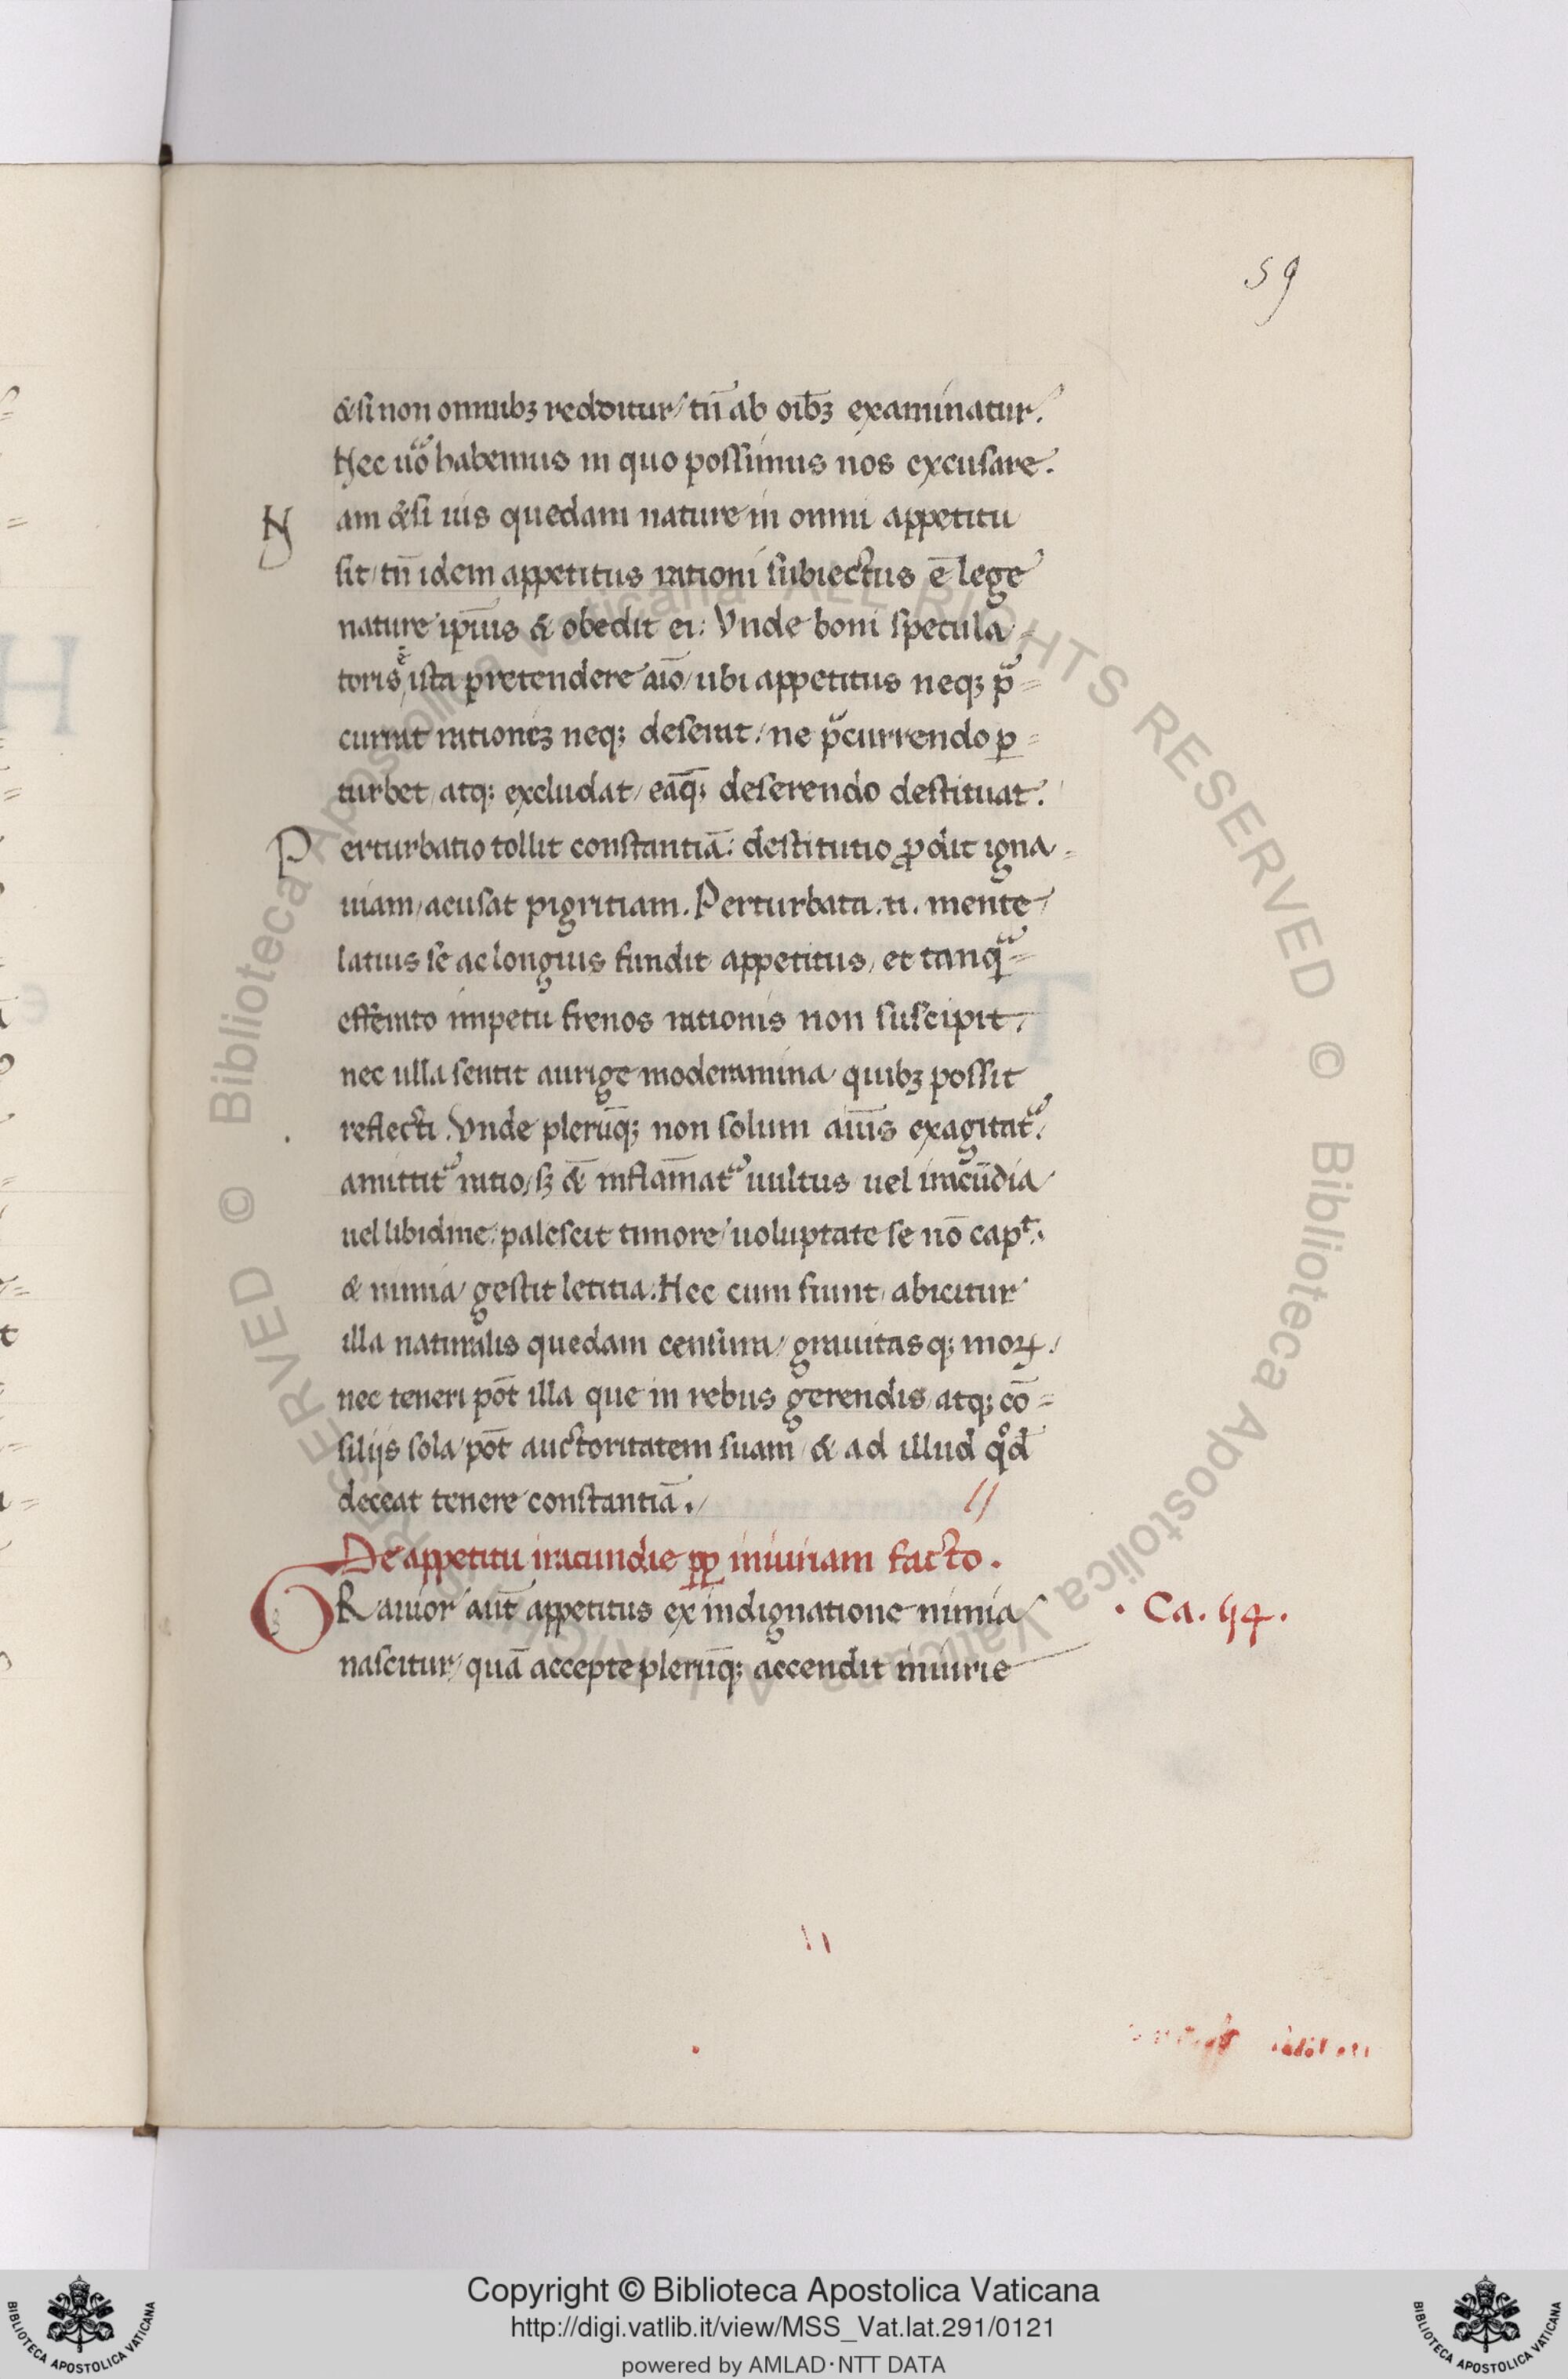 59
&si non omnibꝫ redditur / tn̄ ab oībꝫ examinatur.
Hec uo᷒ habemus in quo possimus nos excusare.
Nam &si uis quedam nature in omni appetitu
sit / tn̄ idem appetitus rationi subiectus ē lege
nature ip̄ius & obedit ei: Vnde boni specula-
toris ē ista pretendere aīo / ubi appetitus neqꝫ p̃=
currat rationeꝫ neqꝫ deserat / ne p̃currendo ꝑ=
turbet / atqꝫ excludat / eāqꝫ deserendo destituat.
Perturbatio tollit constantiā: destitutio ꝓdit igna-
uiam / acusat pigritiam. Perturbata .n. mente
latius se ac longius fundit appetitus, et tanq̃=
efferato impetu frenos rationis non suscipit,
nec ulla sentit aurige moderamina quibꝫ possit
reflecti. Vnde plerūqꝫ non solum aīus exagitat᷒.
amittit᷒ ratio, sꝫ &̄ inflam̄at᷒ uultus uel iracūdia
uel libidine: palescit timore / uoluptate se nō capᵗ:
& nimia gestit letitia. Hec cum fiunt, abicitur
illa naturalis quedam censura / grauitasqꝫ moꝝ.
nec teneri pōt illa que in rebus gerendis atqꝫ cō=
silijs sola pōt auctoritatem suam & ad illud qͦd
deceat tenere constantiā. //
De appetitu iracundie ꝓp iniuriam facto.
GRauior aūt appetitus ex indignatione nimia · Ca. 44.
nascitur / quā accepte plerūqꝫ accendit iniurie
Copyright © Biblioteca Apostolica Vaticana
http://digi.vatlib.it/view/MSS_Vat.lat.291/0121
powered by AMLAD·NTT DATA
BIBLIOTECA APOSTOLICA VATICANA
BIBLIOTECA APOSTOLICA VATICANA
© Biblioteca Apostolica Vaticana ALL RIGHTS RESERVED © Biblioteca Apostolica Vaticana ALL RIGHTS RESERVED